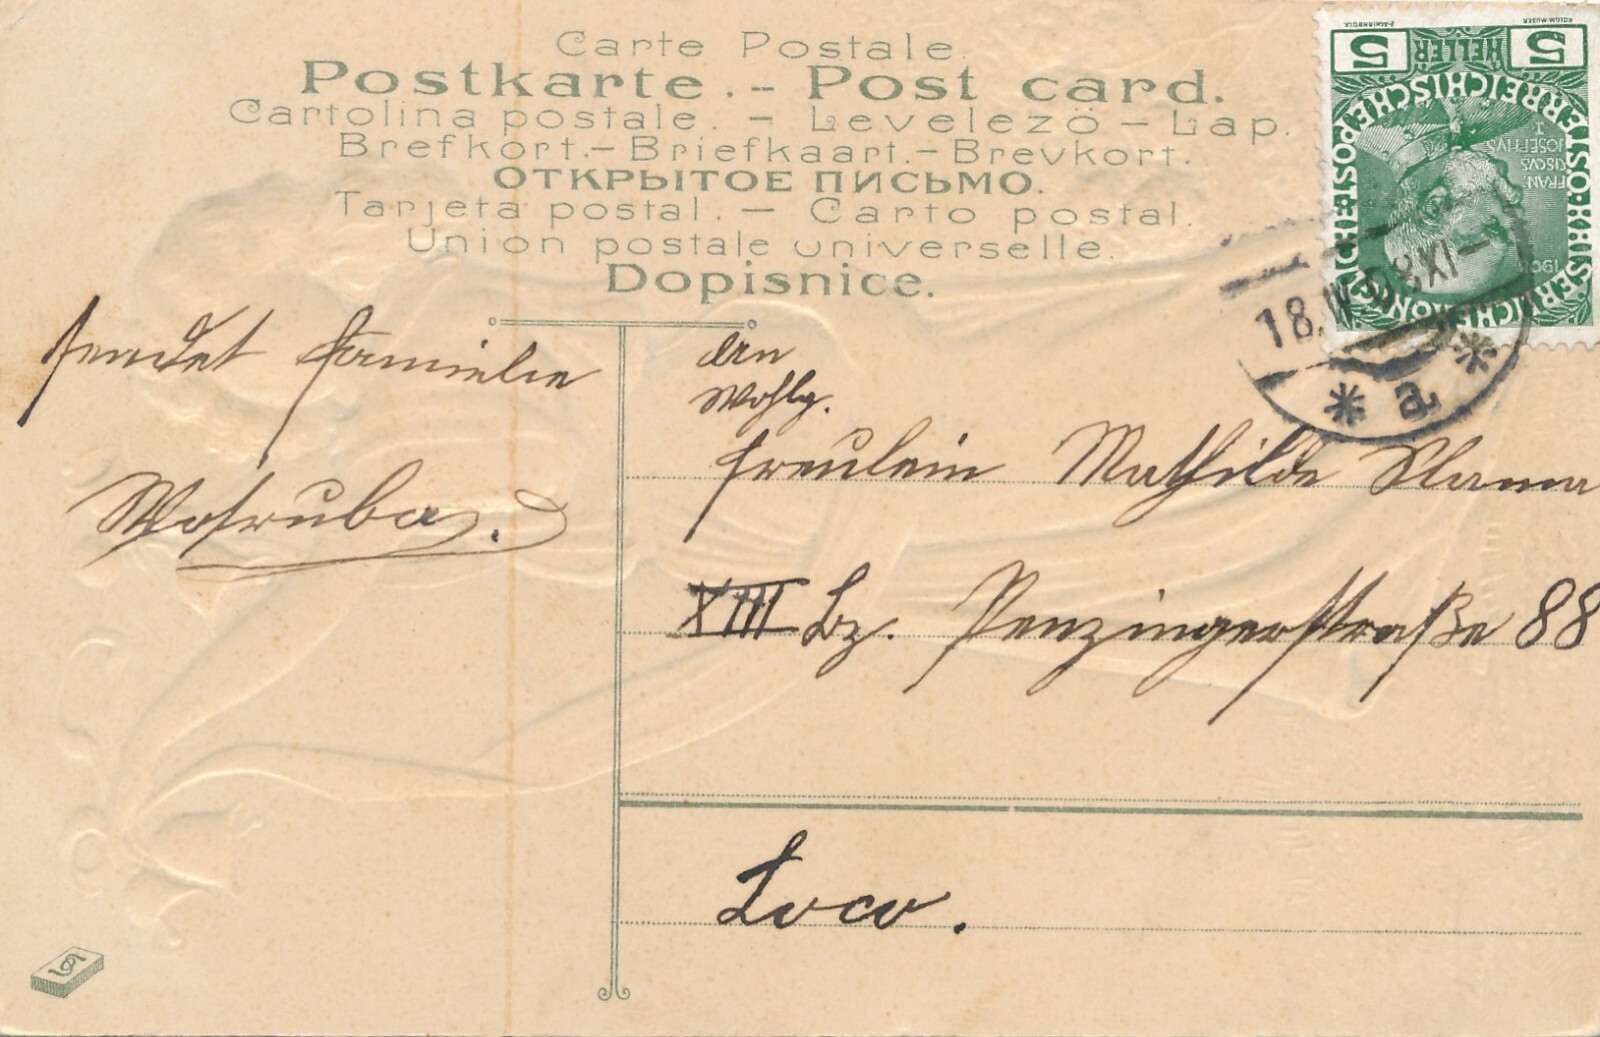 Carte Postale.
Postkarte. – Post card.
Cartolina postale. – Levelezö – Lap.
Brefkort. – Briefkaart. – Brevkort.
ОТКРЫТОЕ ПИСЬМО.
Tarjeta postal. – Carto postal.
Union postale universelle.
Dopisnice.
5 HELLER 5
KAISERL. KÖNIGL. ÖSTERREICHISCHE POST
FRAN
CISCVS
JOSEPHVS
I
1908
18.IV
XI–
* a. *
sendet Familie
Wotruba.
den
Wohlg.
Freulein Mathilde Slama
XIII Bz. Penzingerstraße 88
Loco.